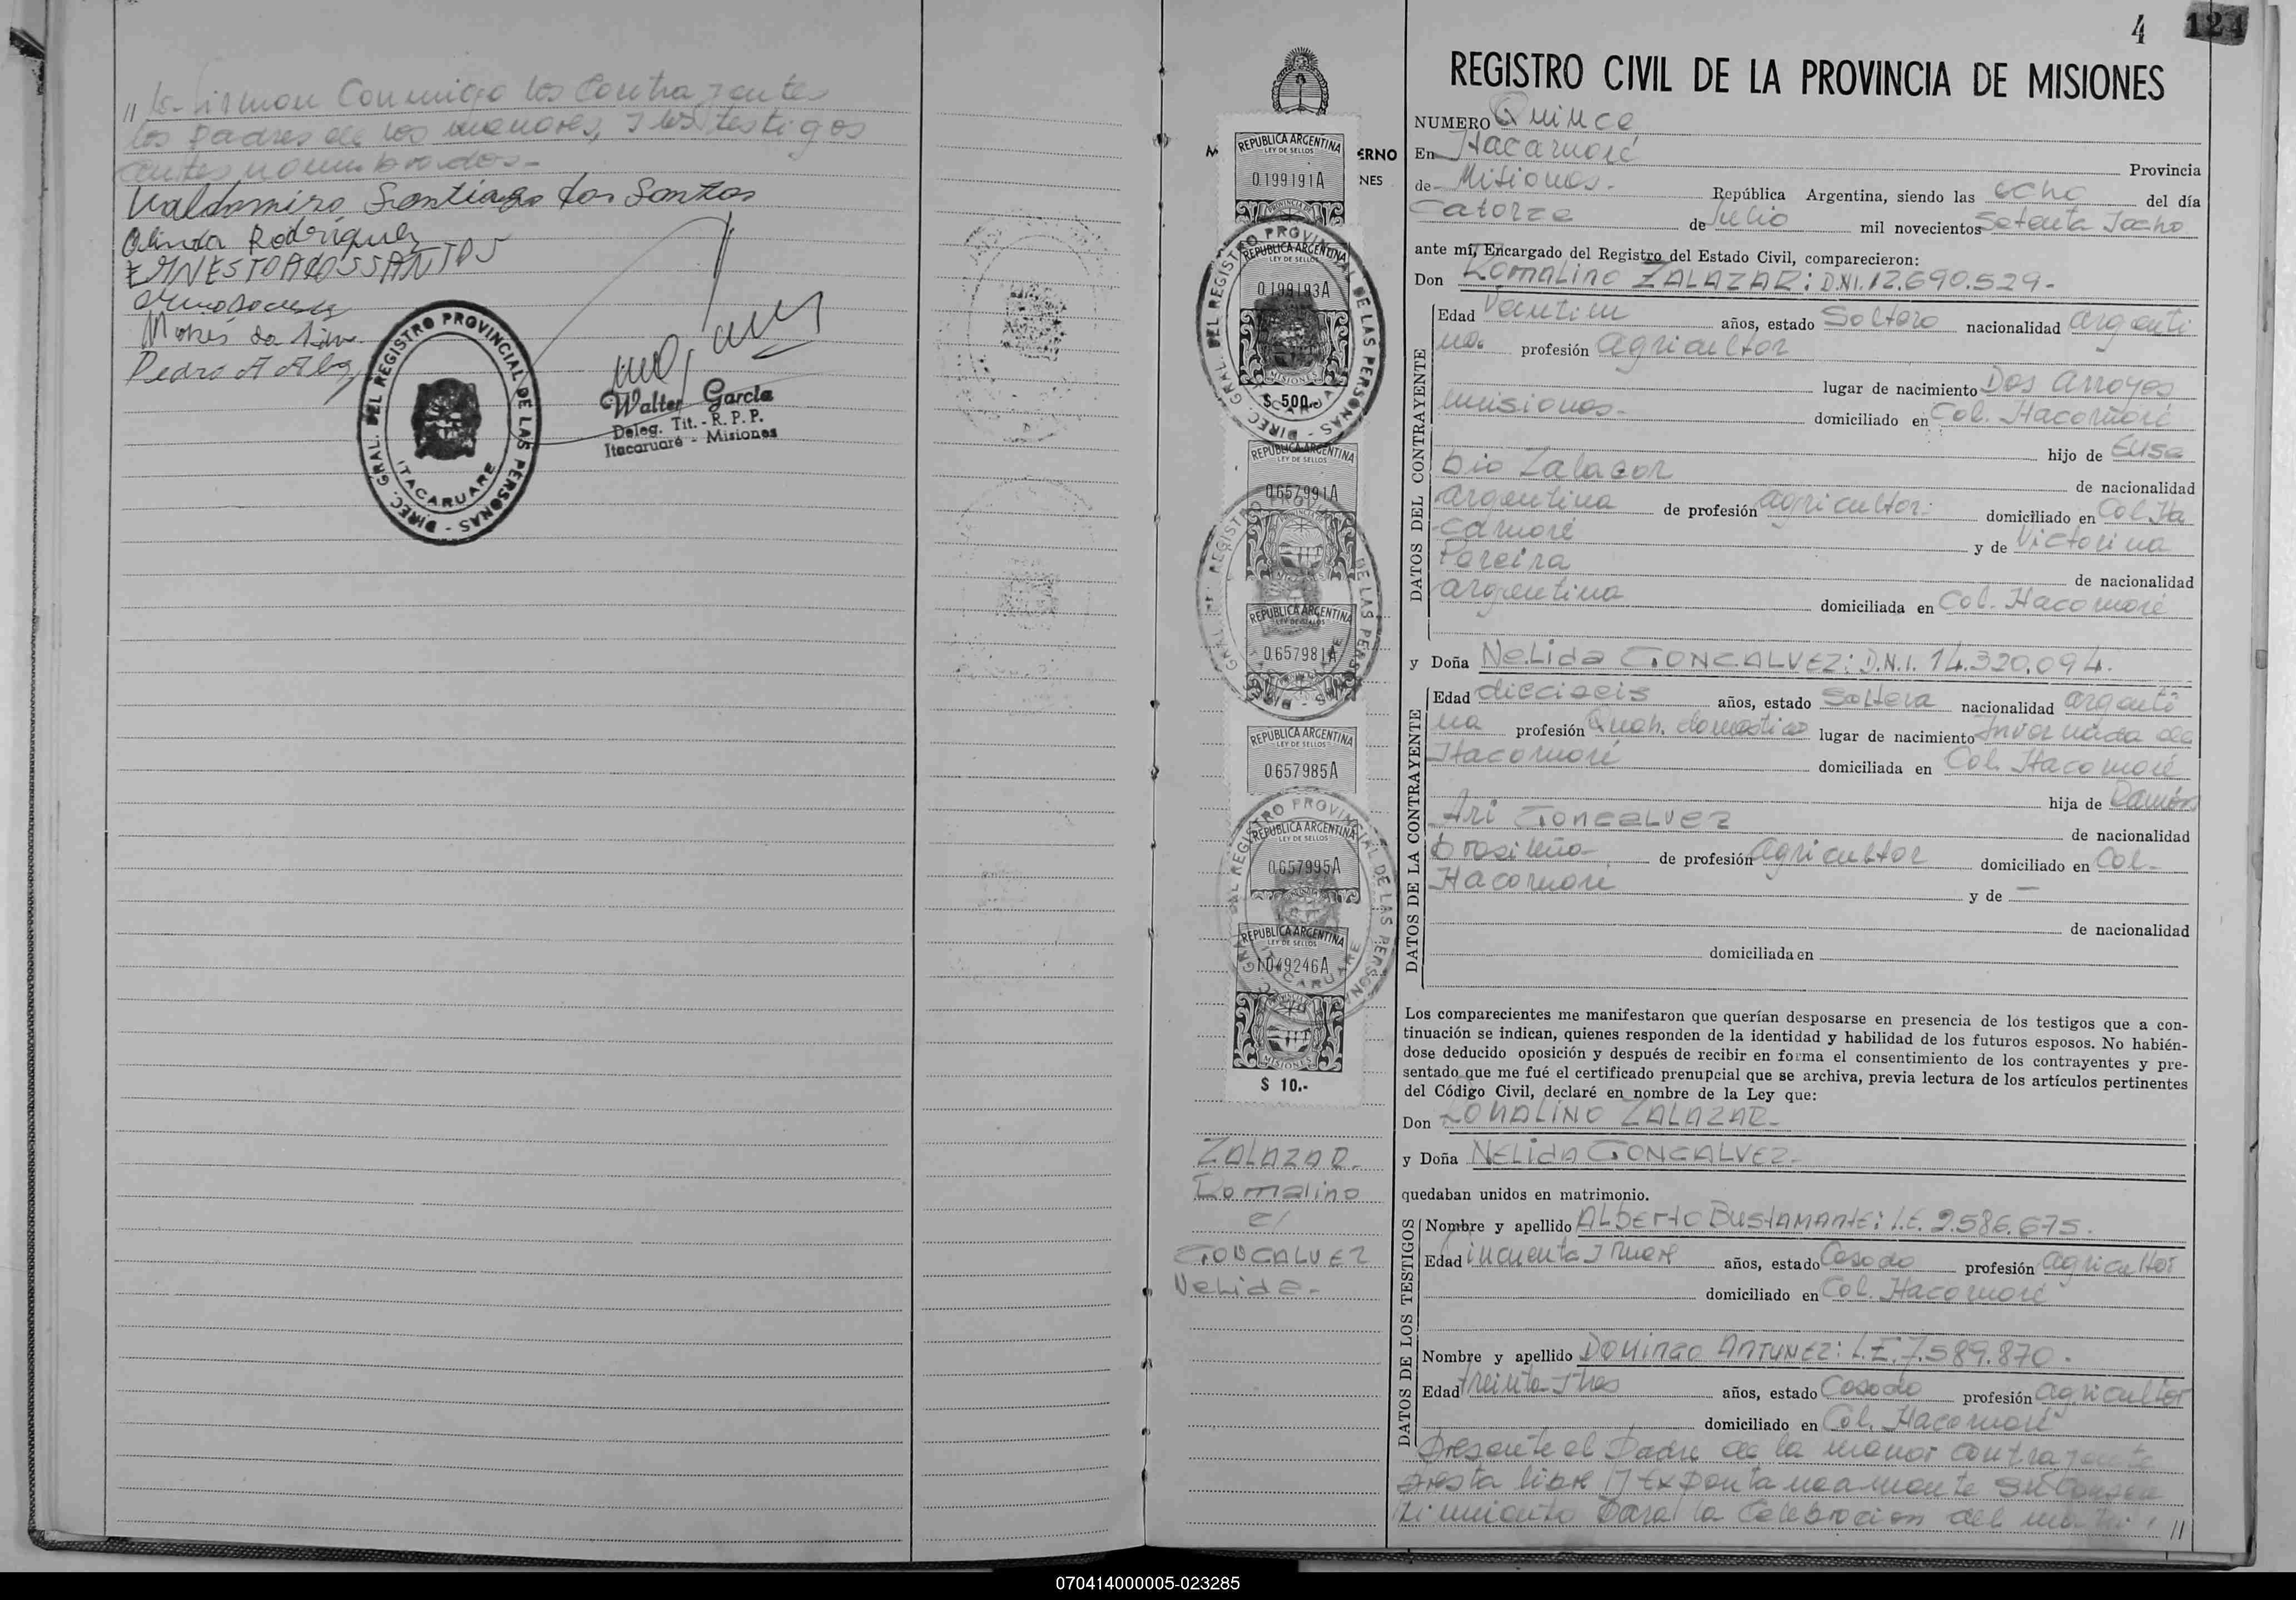 firman Conmigo los Contrayentes
los padres de los menores, y los testigos
antes nombrados-
Valdomiro Santiago dos Santos
Olinda Rodriguez
ERNESTO DOS SANTOS
Moises da Silva
Pedro A Alba
DIREC. GRAL. DEL REGISTRO PROVINCIAL DE LAS PERSONAS -
ITACARUARE
Walter García
Deleg. Tit. - R. P. P.
Itacaruaré - Misiones
REPUBLICA ARGENTINA
LEY DE SELLOS
0.199191A
REPUBLICA ARGENTINA
LEY DE SELLOS
0.199193A
MISIONES
$ 500.-
REPUBLICA ARGENTINA
LEY DE SELLOS
0.657991A
REPUBLICA ARGENTINA
LEY DE SELLOS
0.657981A
REPUBLICA ARGENTINA
LEY DE SELLOS
0.657985A
REPUBLICA ARGENTINA
LEY DE SELLOS
0.657995A
REPUBLICA ARGENTINA
LEY DE SELLOS
1.049246A
MISIONES
$ 10.-
ZALAZAR.
Romalino
c/
GONCALVEZ
Nelida-
4 124
REGISTRO CIVIL DE LA PROVINCIA DE MISIONES
NUMERO Quince
En Itacaruaré Provincia
de Misiones.- República Argentina, siendo las ocho del día
Catorze de Julio mil novecientos Setenta y ocho
ante mí, Encargado del Registro del Estado Civil, comparecieron:
Don Romalino ZALAZAR: D.N.I. 12.690.529-
DATOS DEL CONTRAYENTE
Edad Veintiun años, estado Soltero nacionalidad argenti
na. profesión agricultor
lugar de nacimiento Dos Arroyos
misiones- domiciliado en Col. Itacaruaré
hijo de Euse
bio Zalazar de nacionalidad
argentina de profesión agricultor domiciliado en Col. Ita
caruaré y de Victorina
Pereira de nacionalidad
argentina domiciliada en Col. Itacaruaré
y Doña Nelida GONCALVEZ: D.N.I. 14.320.094.
DATOS DE LA CONTRAYENTE
Edad dieciseis años, estado Soltera nacionalidad argenti
na profesión Queh. domestico lugar de nacimiento Invernada de
Itacaruaré domiciliada en Col. Itacaruaré
hija de Ramón
Ari Goncalvez de nacionalidad
brasileña- de profesión agricultor domiciliado en Col-
Itacaruaré y de —
de nacionalidad
domiciliada en
Los comparecientes me manifestaron que querían desposarse en presencia de los testigos que a con-
tinuación se indican, quienes responden de la identidad y habilidad de los futuros esposos. No habién-
dose deducido oposición y después de recibir en forma el consentimiento de los contrayentes y pre-
sentado que me fué el certificado prenupcial que se archiva, previa lectura de los artículos pertinentes
del Código Civil, declaré en nombre de la Ley que:
Don ROMALINO ZALAZAR-
y Doña NELIDA GONCALVEZ-
quedaban unidos en matrimonio.
DATOS DE LOS TESTIGOS
Nombre y apellido Alberto Bustamante: L.E. 2.586.675.
Edad incuenta y nueve años, estado Casado profesión agricultor
domiciliado en Col. Itacaruaré
Nombre y apellido Domingo Antunez: L.E. 7.589.870.
Edad treinta y tres años, estado Casado profesión agricultor
domiciliado en Col. Itacaruaré
Presente el Padre de la menor contrayente
presta libre y expontaneamente su Consen
timiento para la Celebracion del matri //
070414000005-023285